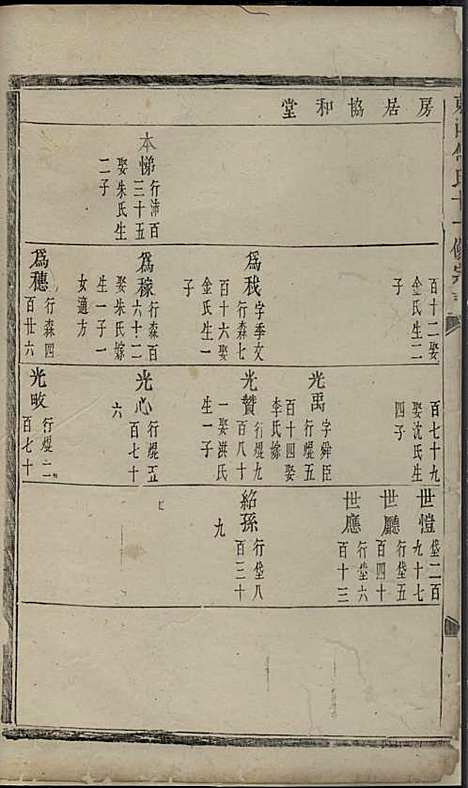 房居協和堂
本悌
行沛百
三十五
娶朱氏生
二子
百十二娶
金氏生二
子
為我
字季文
行森七
百十六娶
金氏生一
子
為稼
行森百
六十二
娶朱氏嫁
生一子一
女適方
為穗
行森四
百廿六
百七十九
娶沈氏生
四子
光禹
字舜臣
行焜五
百十四娶
李氏嫁
光贊
行焜九
百八十
一娶洪氏
生一子
光心
行焜五
百七十
六
光畋
行焜二
百七十
世愷
垡二百
九十七
世廳
行垡五
百四十
世應
行垡六
百十三
紹孫
行垡八
百三十
九